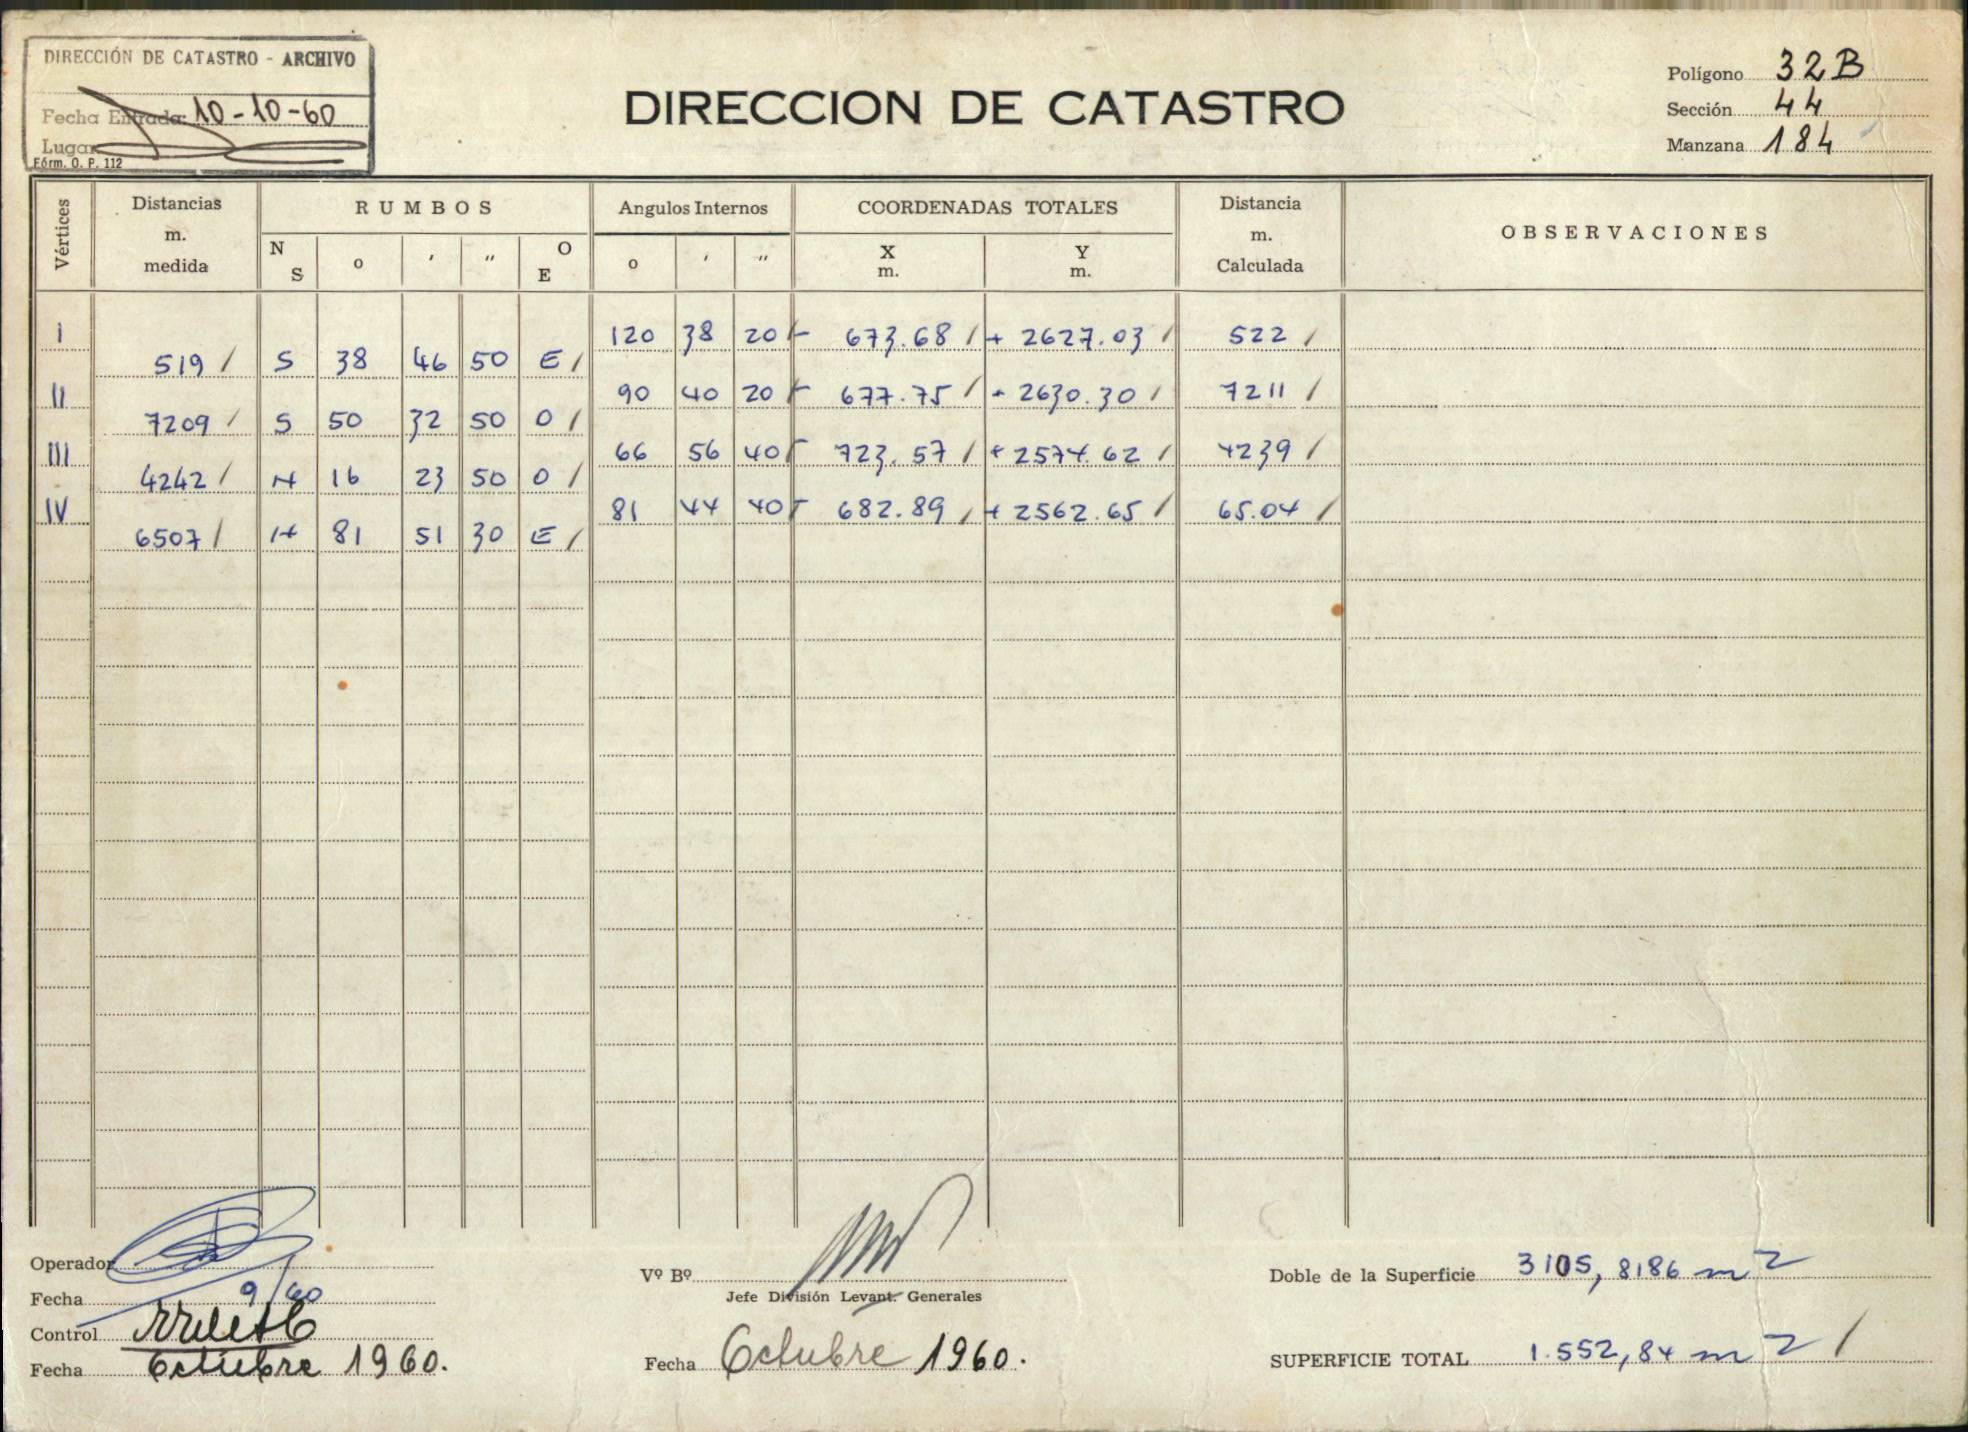 DIRECCIÓN DE CATASTRO - ARCHIVO
Fecha Entrada: 10-10-60
Lugar
Fórm. O. P. 112
DIRECCION DE CATASTRO
Polígono 32B
Sección 44
Manzana 184
Vértices Distancias m. medida RUMBOS Angulos Internos COORDENADAS TOTALES Distancia m. Calculada OBSERVACIONES
N S o ' '' O E o ' '' X m. Y m.
I 120 38 20 - 673.68 / + 2627.03 / 522 /
519 / S 38 46 50 E /
II 90 40 20 - 677.75 / + 2630.30 / 7211 /
7209 / S 50 32 50 O /
III 66 56 40 - 723.57 / + 2574.62 / 4239 /
4242 / N 16 23 50 O /
IV 81 44 40 - 682.89 / + 2562.65 / 65.04 /
6507 / N 81 51 30 E /
Operador
Fecha 9/60
Control
Fecha Octubre 1960.
Vº Bº
Jefe División Levant. Generales
Fecha Octubre 1960.
Doble de la Superficie 3105,8186 m2
SUPERFICIE TOTAL 1.552,84 m2 /